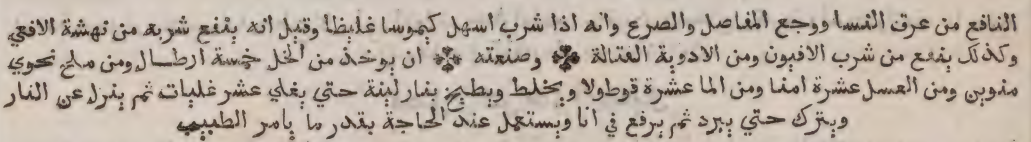 النافع من عرق النسا ووجع المفاصل والصرع وانه اذا شرب اسهل كيموسا غليظا وقيل انه ينفع شربه من نهشة الافعي
وكذلك ينفع من شرب الافيون ومن الادوية القتالة وصنعته ان يوخذ من الخل خمسة ارطال ومن ملح نحوي
منوين ومن العسل عشرة امنا ومن الما عشرة قوطولا ويخلط ويطبخ بنار لينة حتي يغلي عشر غليات ثم ينزل عن النار
ويترك حتي يبرد ثم يرفع في انا ويستعمل عند الحاجة بقدر ما يامر الطبيب